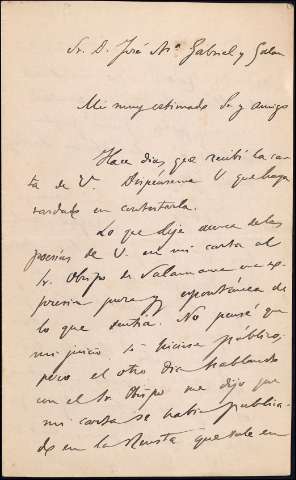 Sr. D. José Mª Gabriel y Galan
Mi muy estimado Sr. y amigo
Hace dias que recibí la car-
ta de V. Dispénseme V que haya
tardado en contestarla.
Lo que dije acerca de las
poesías de V. en mi carta al
Sr. Obispo de Salamanca era ex-
presion pura y espontánea de
lo que sentía. No pensé que
mi juicio se hiciese público,
pero el otro dia hablando
con el Sr. Obispo me dijo que
mi carta se habia publica-
do en la Revista que sale en